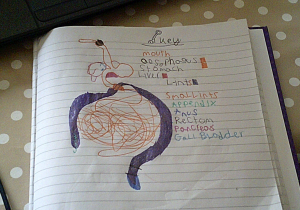 key
mouth
Oesophogus
Stomach
Liver
L ints
Small ints
Appendix
Anus
Rectom
Pancreas
Gall Bladder